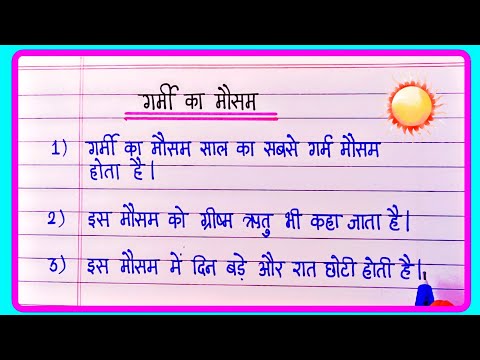 गर्मी का मौसम
1) गर्मी का मौसम साल का सबसे गर्म मौसम
होता है।
2) इस मौसम को ग्रीष्म ऋतु भी कहा जाता है।
3) इस मौसम में दिन बड़े और रात छोटी होती है।